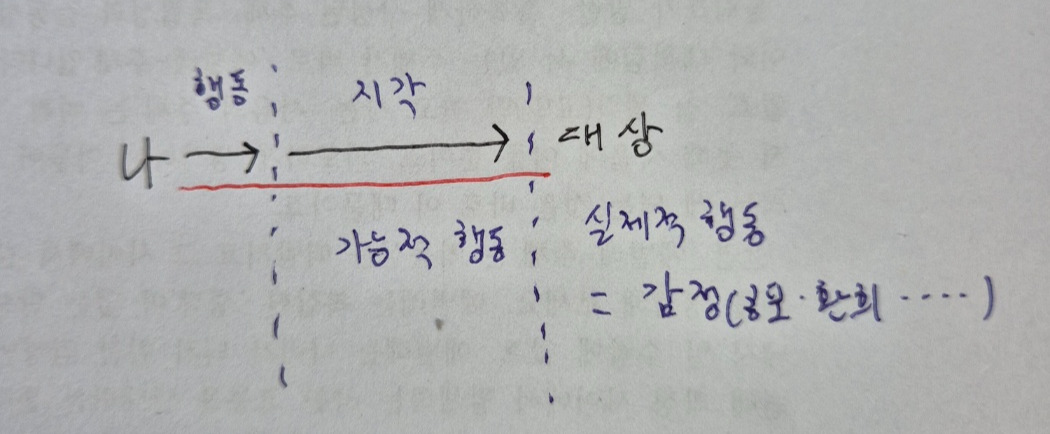 행동 지각
나 → → 대상
가능적 행동 실제적 행동
= 감정(공포·환희 ·····)